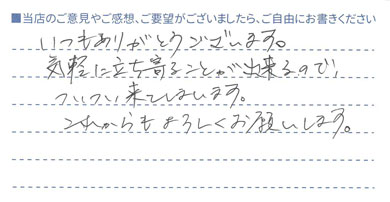 ■当店のご意見やご感想、ご要望がございましたら、ご自由にお書きください
いつもありがとうございます。
気軽に立ち寄ることが出来るので、
ついつい来てしまいます。
これからもよろしくお願いします。